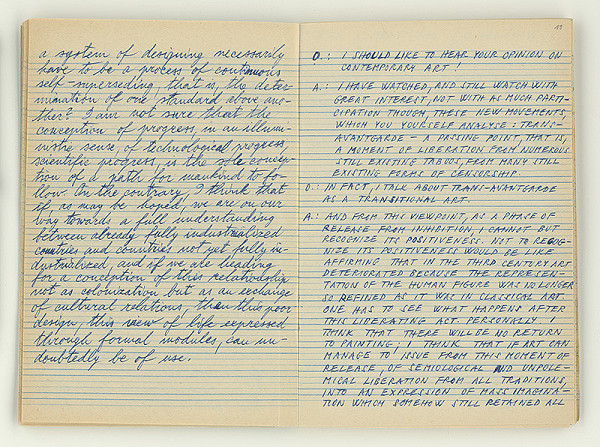 a system of designing necessarily
have to be a process of continuous
self-superseding, that is, the deter-
mination of one standard above ano-
ther? I am not sure that the
conception of progress, in an illumi-
nistic sense, of technological progress,
scientific progress, is the sole concep-
tion of a path for mankind to fo-
llow. On the contrary, I think that
if, as may be hoped, we are on our
way towards a full understanding
between already fully industrialized
countries and countries not yet fully in-
dustrialised, and if we are heading
for a conception of this relationship
not as colonization but as an exchange
of cultural relations, then this poor
design, this view of life expressed
through formal modules, can un-
doubtedly be of use.
D.: I SHOULD LIKE TO HEAR YOUR OPINION ON
CONTEMPORARY ART!
A.: I HAVE WATCHED, AND STILL WATCH WITH
GREAT INTEREST, NOT WITH AS MUCH PARTI-
CIPATION THOUGH, THESE NEW MOVEMENTS,
WHICH YOU YOURSELF ANALYSE: TRANS-
AVANTGARDE - A PASSING POINT, THAT IS,
A MOMENT OF LIBERATION FROM NUMEROUS
STILL EXISTING TABOOS, FROM MANY STILL
EXISTING FORMS OF CENSORSHIP.
D.: IN FACT, I TALK ABOUT TRANS-AVANTGARDE
AS A TRANSITIONAL ART.
A.: AND FROM THIS VIEWPOINT, AS A PHASE OF
RELEASE FROM INHIBITION, I CANNOT BUT
RECOGNIZE ITS POSITIVENESS. NOT TO RECOG-
NIZE ITS POSITIVENESS WOULD BE LIKE
AFFIRMING THAT IN THE THIRD CENTURY ART
DETERIORATED BECAUSE THE REPRESEN-
TATION OF THE HUMAN FIGURE WAS NO LONGER
SO REFINED AS IT WAS IN CLASSICAL ART.
ONE HAS TO SEE WHAT HAPPENS AFTER
THIS LIBERATING ACT. PERSONALLY I
THINK THAT THERE WILL BE NO RETURN
TO PAINTING; I THINK THAT IF ART CAN
MANAGE TO ISSUE FROM THIS MOMENT OF
RELEASE, OF SEMIOLOGICAL AND UNPOLE-
MICAL LIBERATION FROM ALL TRADITIONS,
INTO AN EXPRESSION OF MASS IMAGINA-
TION WHICH SOMEHOW STILL RETAINED ALL